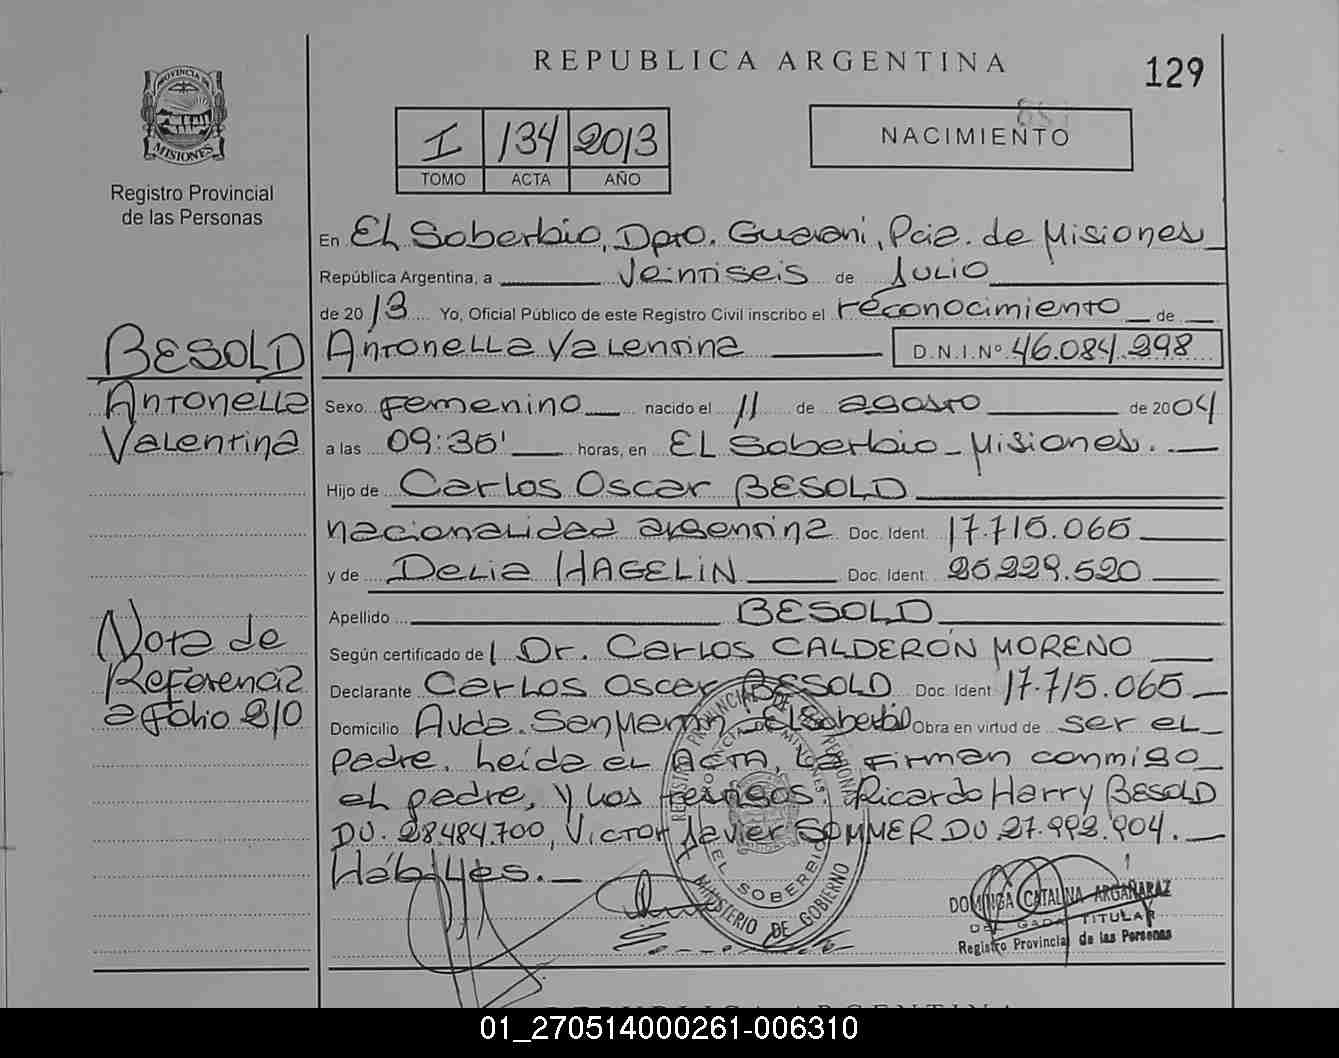 REPUBLICA ARGENTINA
129
PROVINCIA DE
MISIONES
Registro Provincial
de las Personas
I 134 2013
TOMO ACTA AÑO
NACIMIENTO
En El Soberbio, Dpto. Guarani, Pcia. de Misiones
República Argentina, a Veintiseis de Julio
de 2013 Yo, Oficial Público de este Registro Civil inscribo el reconocimiento de
Antonella Valentina D.N.I.Nº 46.084.298
BESOLD
Antonella
Valentina
Sexo Femenino nacido el 11 de agosto de 2004
a las 09:35' horas, en El Soberbio - Misiones.
Hijo de Carlos Oscar BESOLD
nacionalidad argentina Doc. Ident. 17.715.065
y de Delia HAGELIN Doc. Ident. 25.229.520
Apellido BESOLD
Nota de
Referencia
a folio 210
Según certificado del Dr. Carlos CALDERÓN MORENO
Declarante Carlos Oscar BESOLD Doc. Ident 17.715.065
Domicilio Avda. San Martin - El Soberbio Obra en virtud de ser el
padre. Leída el Acta, la firman conmigo
el padre, y los testigos: Ricardo Harry BESOLD
DU. 28.484.700, Victor Javier SOMMER DU 27.992.904.
Hábiles.
REGISTRO PROVINCIAL DE LAS PERSONAS
PROVINCIA DE MISIONES
EL SOBERBIO
MINISTERIO DE GOBIERNO
DOMINGA CATALINA ARGAÑARAZ
DELEGADA TITULAR
Registro Provincial de las Personas
REPUBLICA ARGENTINA
01_270514000261-006310